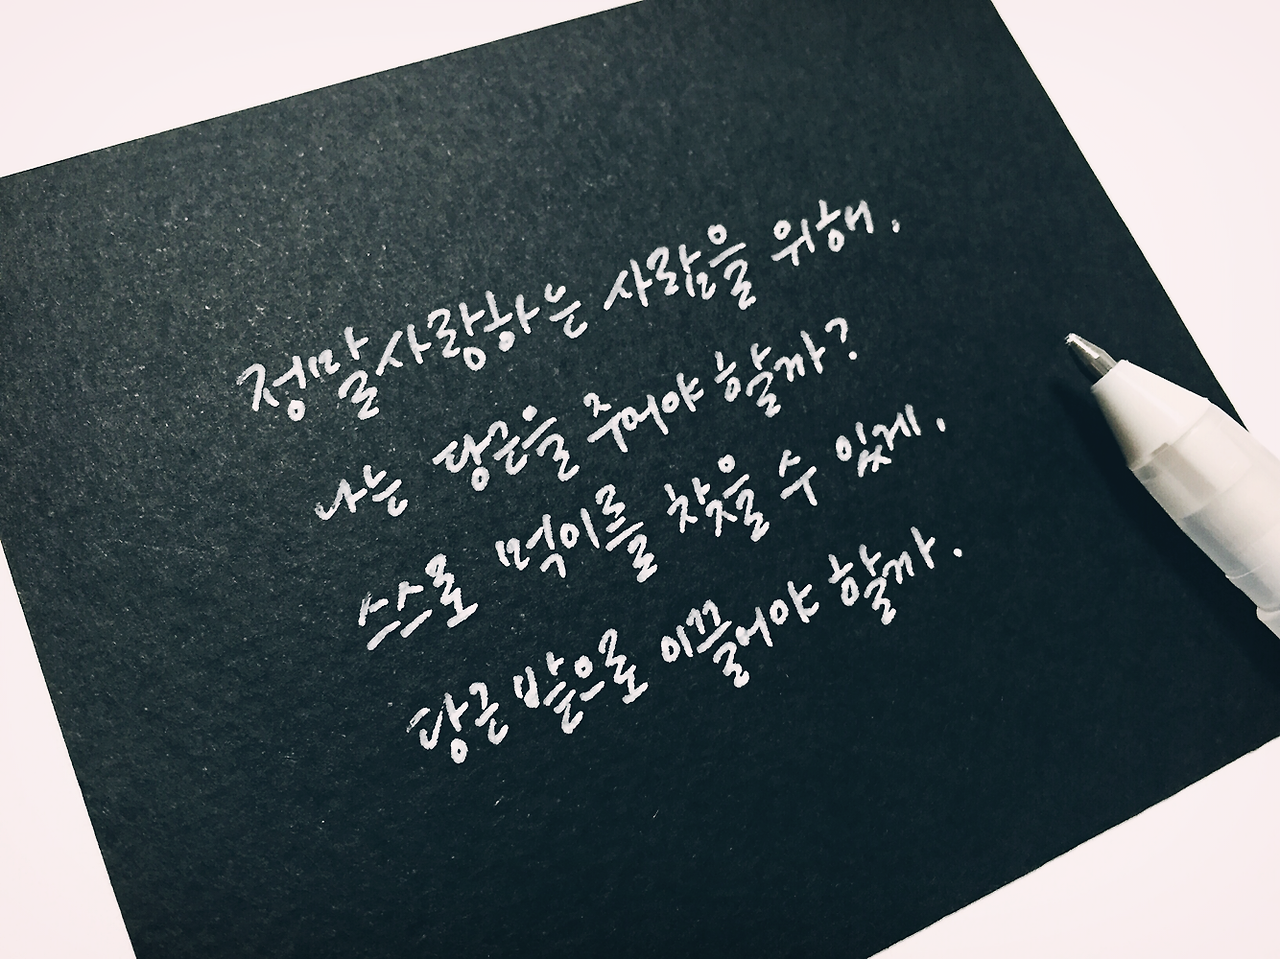 정말 사랑하는 사람을 위해.
나는 당근을 주어야 할까?
스스로 먹이를 찾을 수 있게.
당근 밭으로 이끌어야 할까.